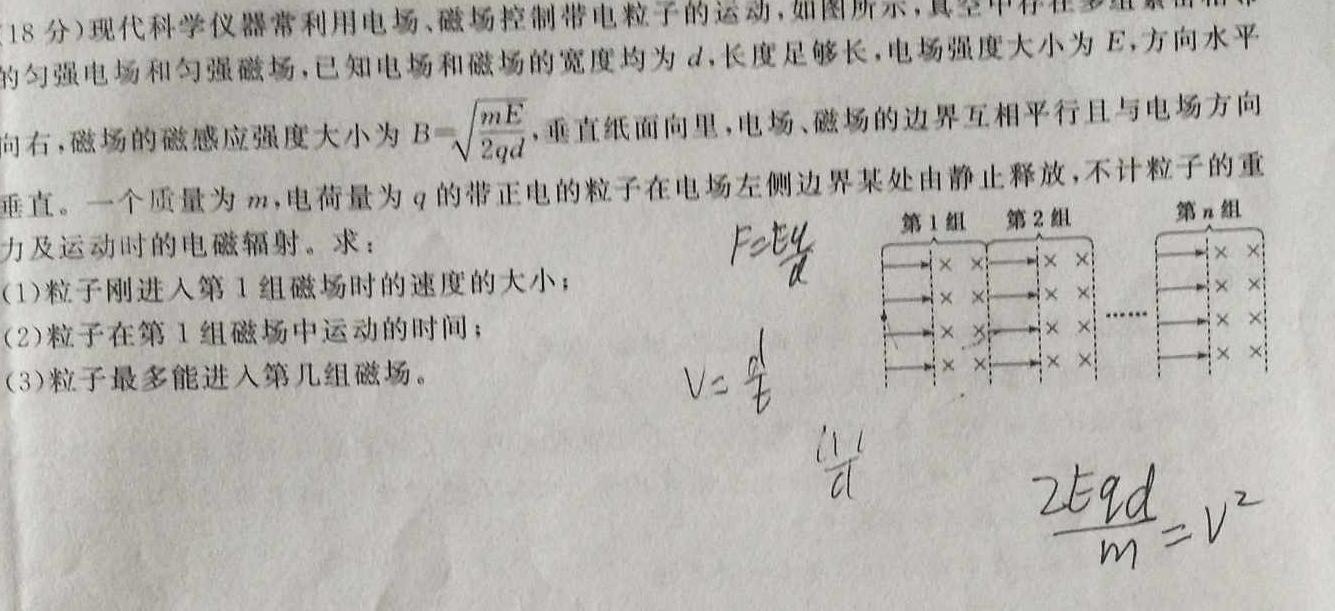 (18分)现代科学仪器常利用电场、磁场控制带电粒子的运动,如图所示,真空中存在多组紧密相邻
的匀强电场和匀强磁场,已知电场和磁场的宽度均为d,长度足够长,电场强度大小为E,方向水平
向右,磁场的磁感应强度大小为B=√(mE/2qd),垂直纸面向里,电场、磁场的边界互相平行且与电场方向
垂直。一个质量为m,电荷量为q的带正电的粒子在电场左侧边界某处由静止释放,不计粒子的重
力及运动时的电磁辐射。求:
(1)粒子刚进入第1组磁场时的速度的大小;
(2)粒子在第1组磁场中运动的时间;
(3)粒子最多能进入第几组磁场。
第1组 第2组 第n组
× × × × × ×
× × × × × ×
× × × × ...... × ×
× × × × × ×
V=d/t
2Eqd/m=V²